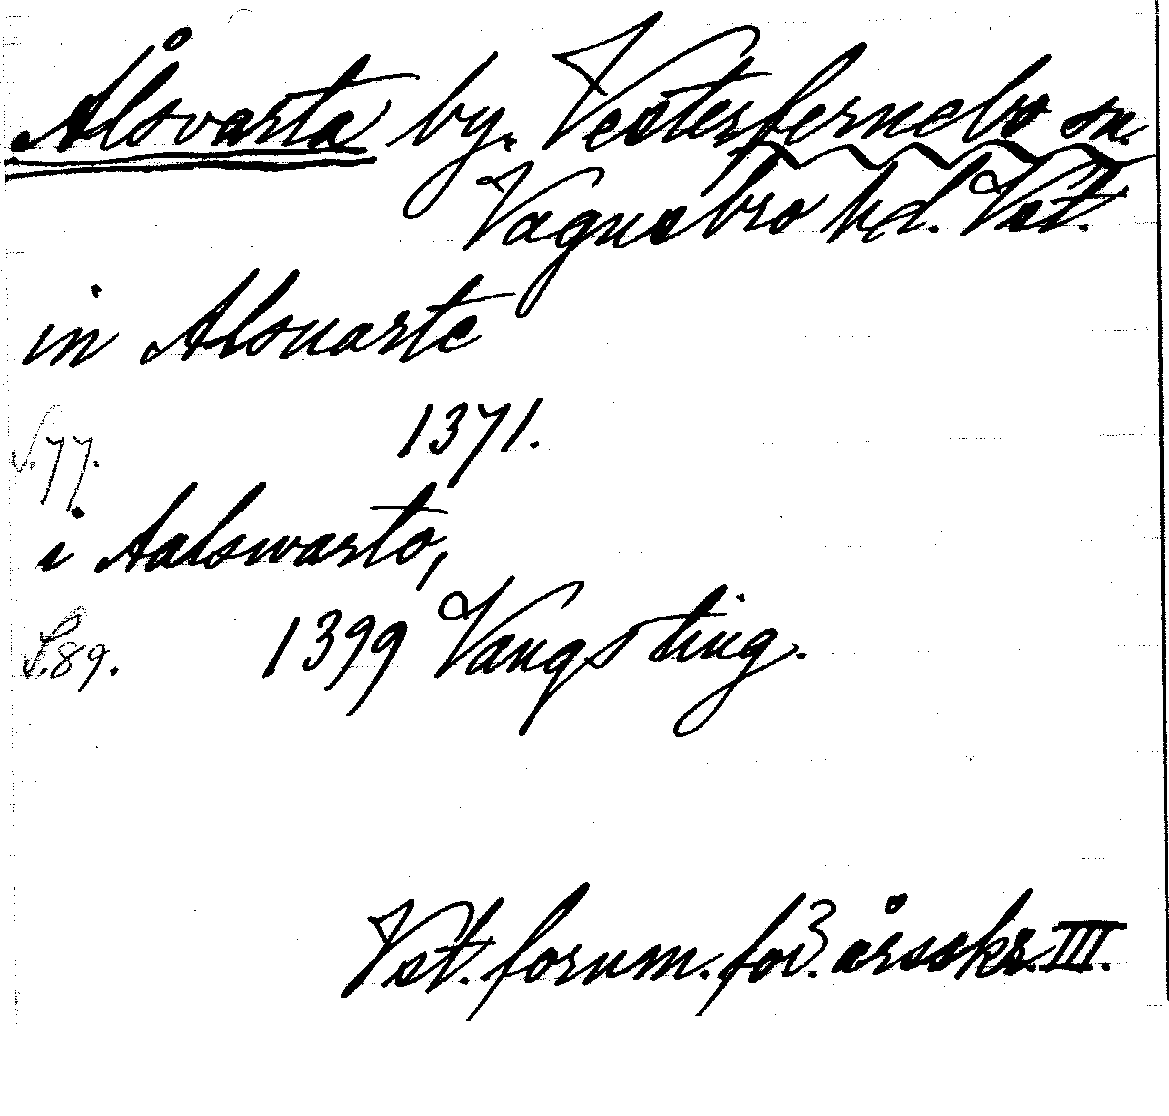 Ålsvarta by. Vesterfernebo sn.
Vagnsbro hd. Vst.
in Alsuarte
1371.
S. 77.
i Aalswarto,
S. 89. 1399 Vangsting.
Vst. fornm. för. årsskr. III.